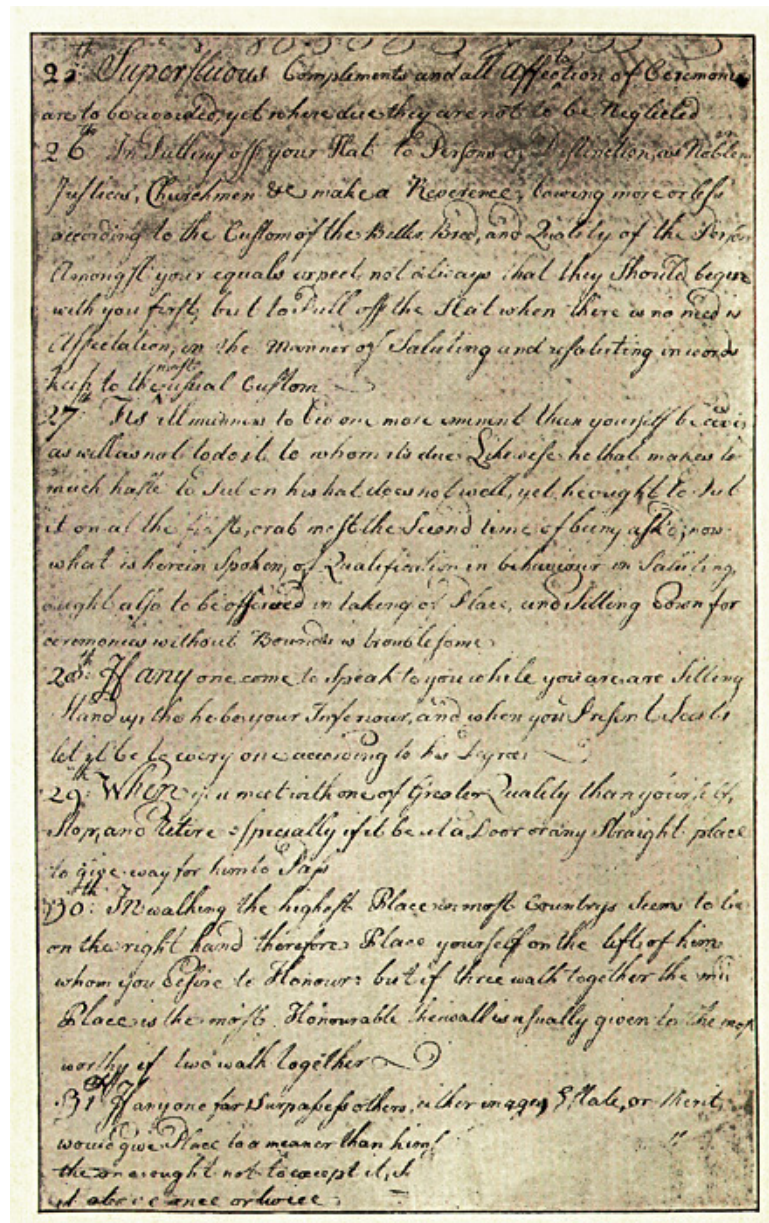 25th Superfluous Complements and all Affectation of Ceremonie
are to be avoided, yet where due they are not to be Neglected
26th In Pulling off your Hat to Persons of Distinction, as Noblemen
Justices, Churchmen &c make a Reverence, bowing more or less
according to the Custom of the Better Bred, and Quality of the Person
Amongst your equals expect not always that they Should begin
with you first, but to Pull off the Hat when there is no need is
Affectation, in the Manner of Saluting and resaluting in words
keep to the most usual Custom
27th Tis ill manners to bid one more eminent than yourself be
as well as not to do it to whom it's due Likewise he that makes to
much haste to Put on his hat does not well, yet he ought to Put
it on at the first, or at most the Second time of being ask'd; now
what is herein Spoken, of Qualification in behaviour in Saluting,
ought also to be observed in taking of Place, and Sitting down for
ceremonies without Bounds is troublesome
28th If any one come to Speak to you while you are are Sitting
Stand up tho he be your Inferiour, and when you Present Seats
let it be to every one according to his Degree
29th When you meet with one of Greater Quality than yourself,
Stop, and retire especially if it be at a Door or any Straight place
to give way for him to Pass
30th In walking the highest Place in most Countrys Seems to be
on the right hand therefore Place yourself on the left of him
whom you desire to Honour: but if three walk together the
Place is the most Honourable the wall is usually given to the most
worthy if two walk together
31st If any one far Surpasses others, either in age, Estate, or Merit
would give Place to a meaner than
the one ought not to except it,
it above once or twice